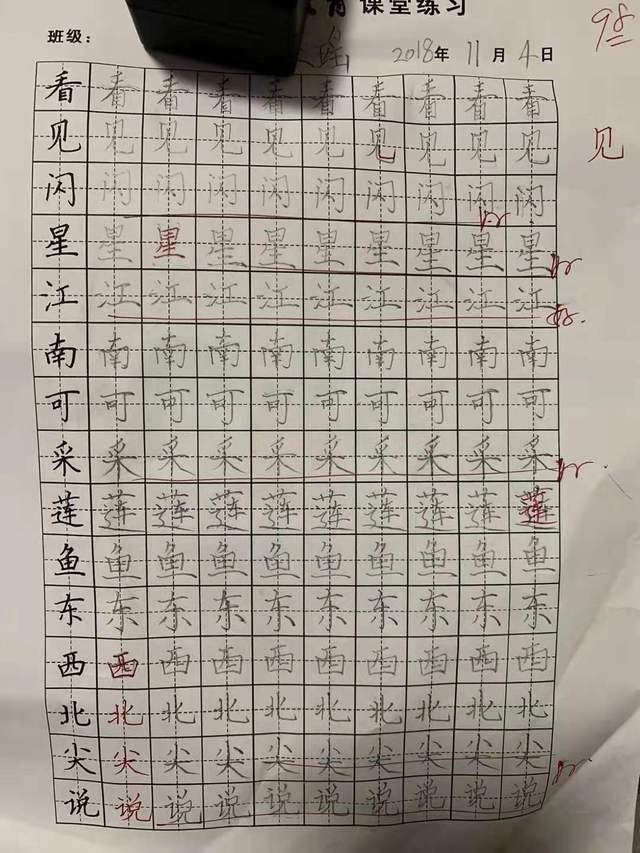 育 课堂练习
98
班级： 瑶 2018年 11月 4日
看 看 看 看 看 看 看 看 看 看
见 见 见 见 见 见 见 见 见 见 见
闪 闪 闪 闪 闪 闪 闪 闪 闪 闪
星 星 星 星 星 星 星 星 星 星
江 江 江 江 江 江 江 江 江 江
南 南 南 南 南 南 南 南 南 南
可 可 可 可 可 可 可 可 可 可
采 采 采 采 采 采 采 采 采 采
莲 莲 莲 莲 莲 莲 莲 莲 莲 莲
鱼 鱼 鱼 鱼 鱼 鱼 鱼 鱼 鱼 鱼
东 东 东 东 东 东 东 东 东 东
西 西 西 西 西 西 西 西 西 西
北 北 北 北 北 北 北 北 北 北
尖 尖 尖 尖 尖 尖 尖 尖 尖 尖
说 说 说 说 说 说 说 说 说 说